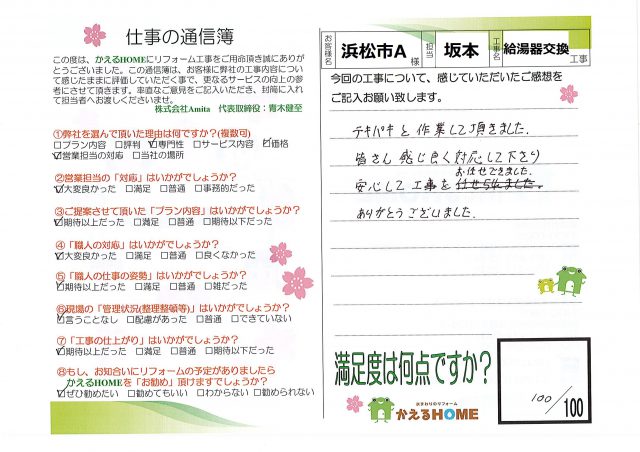 仕事の通信簿
この度は、かえるHOMEにリフォーム工事をご用命頂き誠にありが
とうございました。この通信簿は、お客様に弊社の工事内容につい
て感じたままに評価していただく事で、更なるサービスの向上の参
考にさせて頂きます。率直なご意見をご記入いただき、封筒に入れ
て担当者へお渡しくださいませ。
株式会社Amita 代表取締役：青木健至
①弊社を選んで頂いた理由は何ですか？(複数可)
□プラン内容 □評判 ☑専門性 □サービス内容 ☑価格
☑営業担当の対応 □当社の場所
②営業担当の「対応」はいかがでしょうか？
☑大変良かった □満足 □普通 □事務的だった
③ご提案させて頂いた「プラン内容」はいかがでしょうか？
☑期待以上だった □満足 □普通 □期待以下だった
④「職人の対応」はいかがでしょうか？
☑大変良かった □満足 □普通 □良くなかった
⑤「職人の仕事の姿勢」はいかがでしょうか？
☑期待以上だった □満足 □普通 □雑だった
⑥現場の「管理状況(整理整頓等)」はいかがでしょうか？
☑言うことなし □配慮があった □普通 □できていない
⑦「工事の仕上がり」はいかがでしょうか？
☑期待以上だった □満足 □普通 □期待以下だった
⑧もし、お知合いにリフォームの予定がありましたら
かえるHOMEを「お勧め」頂けますでしょうか？
☑ぜひ勧めたい □勧めてもいい □わからない □勧められない
お客様名 浜松市A 様 担当 坂本 工事名 給湯器交換 工事
今回の工事について、感じていただいたご感想を
ご記入お願い致します。
テキパキと作業して頂きました。
皆さん感じ良く対応して下さり
お任せできました。
安心して工事を
ありがとうございました。
満足度は何点ですか？
水まわりのリフォーム
かえるHOME
100/100